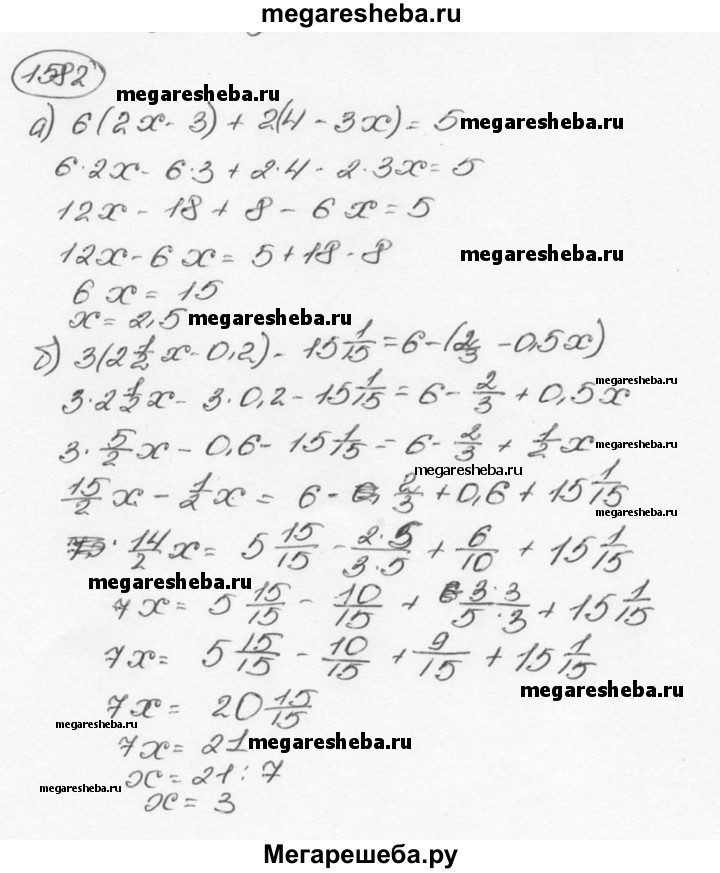 megaresheba.ru
1582
megaresheba.ru
а) 6(2x - 3) + 2(4 - 3x) = 5 megaresheba.ru
6·2x - 6·3 + 2·4 - 2·3x = 5
12x - 18 + 8 - 6x = 5
12x - 6x = 5 + 18 - 8 megaresheba.ru
6x = 15
x = 2,5 megaresheba.ru
б) 3(2 1/2 x - 0,2) - 15 1/15 = 6 - (2/3 - 0,5x)
megaresheba.ru
3·2 1/2 x - 3·0,2 - 15 1/15 = 6 - 2/3 + 0,5x
3·5/2 x - 0,6 - 15 1/15 = 6 - 2/3 + 1/2 x
megaresheba.ru
megaresheba.ru
15/2 x - 1/2 x = 6 - 2/3 + 0,6 + 15 1/15
megaresheba.ru
14/2 x = 5 15/15 - 2·5/3·5 + 6/10 + 15 1/15
megaresheba.ru
7x = 5 15/15 - 10/15 + 3·3/5·3 + 15 1/15
7x = 5 15/15 - 10/15 + 9/15 + 15 1/15
megaresheba.ru
7x = 20 15/15
megaresheba.ru
7x = 21 megaresheba.ru
x = 21 : 7
megaresheba.ru
x = 3
Мегарешеба.ру